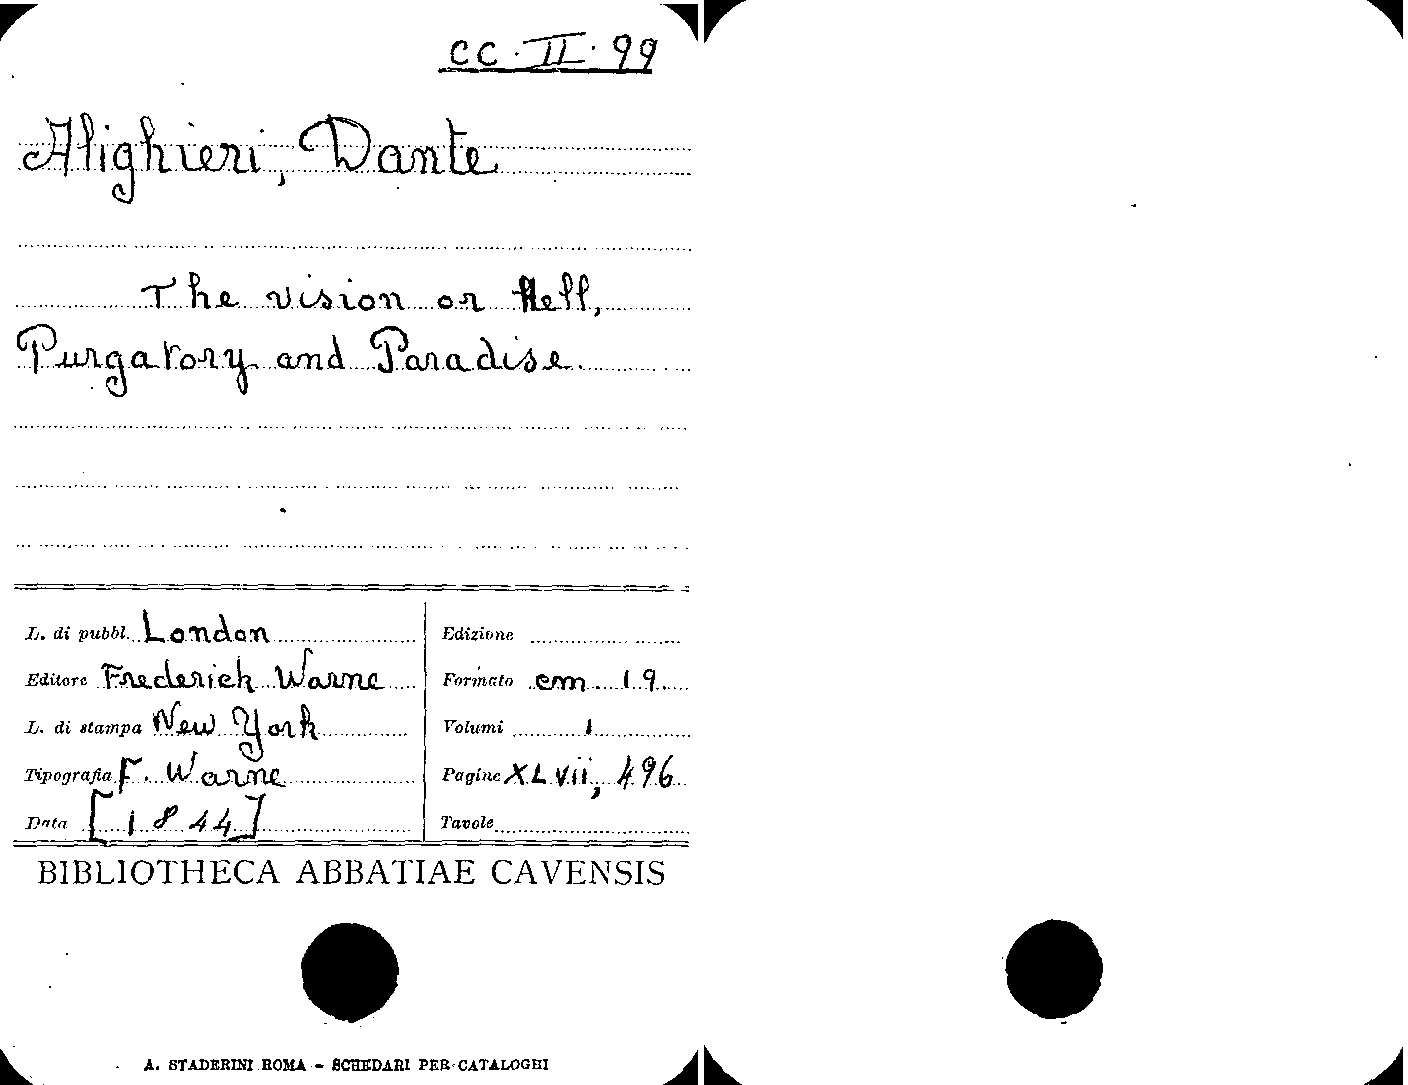 CC·II·99
Alighieri, Dante
The vision or Hell,
Purgatory and Paradise.
L. di pubbl. London
Editore Frederick Warne
L. di stampa New York
Tipografia F. Warne
Data [1844]
Edizione
Formato cm. 19.
Volumi 1
Pagine XLVii, 496
Tavole
BIBLIOTHECA ABBATIAE CAVENSIS
A. STADERINI ROMA - SCHEDARI PER CATALOGHI